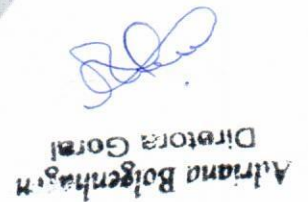 Adriana Bolgenhagen
Diretora Geral